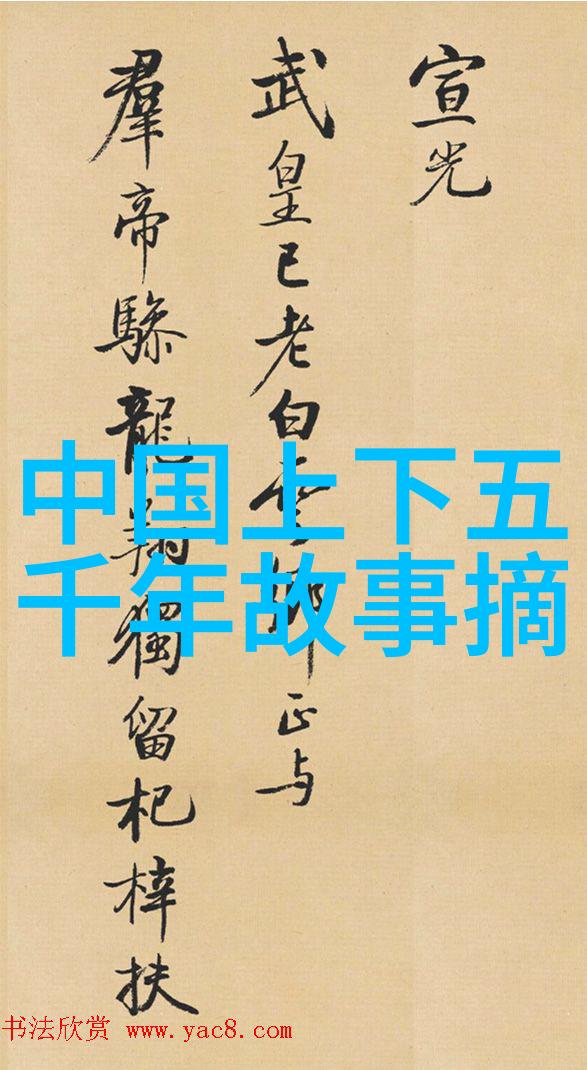 宣光
武皇已老白雲鄉正与
羣帝驂龍翔獨留杞梓扶
中国上下五
千年故事摘
书法欣赏 www.yac8.com